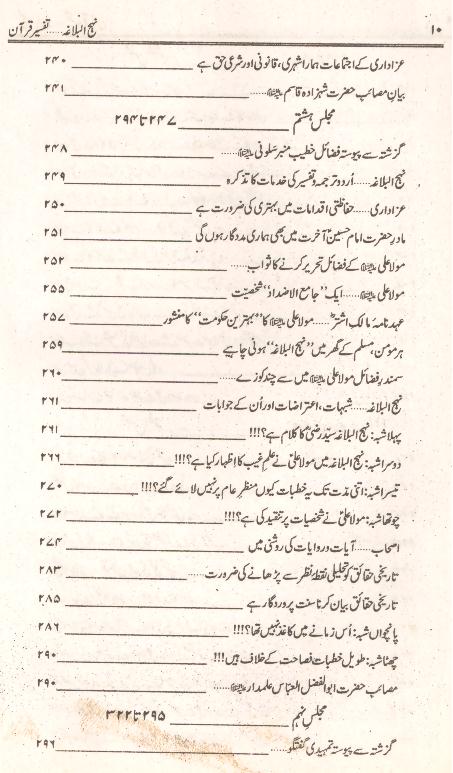 ۱۰ نہج البلاغہ......تفسیر قرآن
عزاداری کے اجتماعات ہمارا شہری، قانونی اور شرعی حق ہے ۲۴۰
بیانِ مصائب حضرت شہزادہ قاسم علیہ السلام...... ۲۴۱
مجلس ہشتم ۲۴۷ تا ۲۹۴
گزشتہ سے پیوستہ فضائل خطیب منبر سلونی علیہ السلام...... ۲۴۸
نہج البلاغہ......اُردو ترجمہ و تفسیر کی خدمات کا تذکرہ ۲۴۹
عزاداری......حفاظتی اقدامات میں بہتری کی ضرورت ہے ۲۵۰
مادرِ حضرت امام حسینؑ آخرت میں بھی ہماری مددگار ہوں گی ۲۵۱
مولا علی علیہ السلام کے فضائل تحریر کرنے کا ثواب...... ۲۵۲
مولا علی علیہ السلام......ایک ”جامع الاضداد“ شخصیت ۲۵۵
عہد نامہ مالک اشترؓ......مولا علی علیہ السلام کا ”بہترین حکومت“ کا منشور ۲۵۷
ہر مومن، مسلم کے گھر میں ”نہج البلاغہ“ ہونی چاہیے ۲۵۹
سمندرِ فضائل مولا علی علیہ السلام میں سے چند کوزے...... ۲۶۰
نہج البلاغہ......شبہات، اعتراضات اور اُن کے جوابات ۲۶۱
پہلا شبہ: نہج البلاغہ سیّد رضیؒ کا کلام ہے؟!!! ۲۶۱
دوسرا شبہ: نہج البلاغہ میں مولا علیؑ نے علمِ غیب کا اظہار کیا ہے؟!!! ۲۶۶
تیسرا شبہ: اتنی مدت تک یہ خطبات کیوں منظرِ عام پر نہیں لائے گئے؟!!! ۲۷۰
چوتھا شبہ: مولا علیؑ نے شخصیات پر تنقید کی ہے؟!!! ۲۷۲
اصحاب......آیات و روایات کی روشنی میں ۲۷۴
تاریخی حقائق کو تحلیلی نقطۂ نظر سے پڑھانے کی ضرورت...... ۲۸۳
تاریخی حقائق بیان کرنا سنت پروردگار ہے ۲۸۵
پانچواں شبہ: اُس زمانے میں کاغذ نہیں تھا؟!!! ۲۸۶
چھٹا شبہ: طویل خطبات فصاحت کے خلاف ہیں!!! ۲۹۰
مصائب حضرت ابوالفضل العباس علمدار علیہ السلام...... ۲۹۰
مجلس نہم ۲۹۵ تا ۳۲۲
گزشتہ سے پیوستہ تمہیدی گفتگو...... ۲۹۶